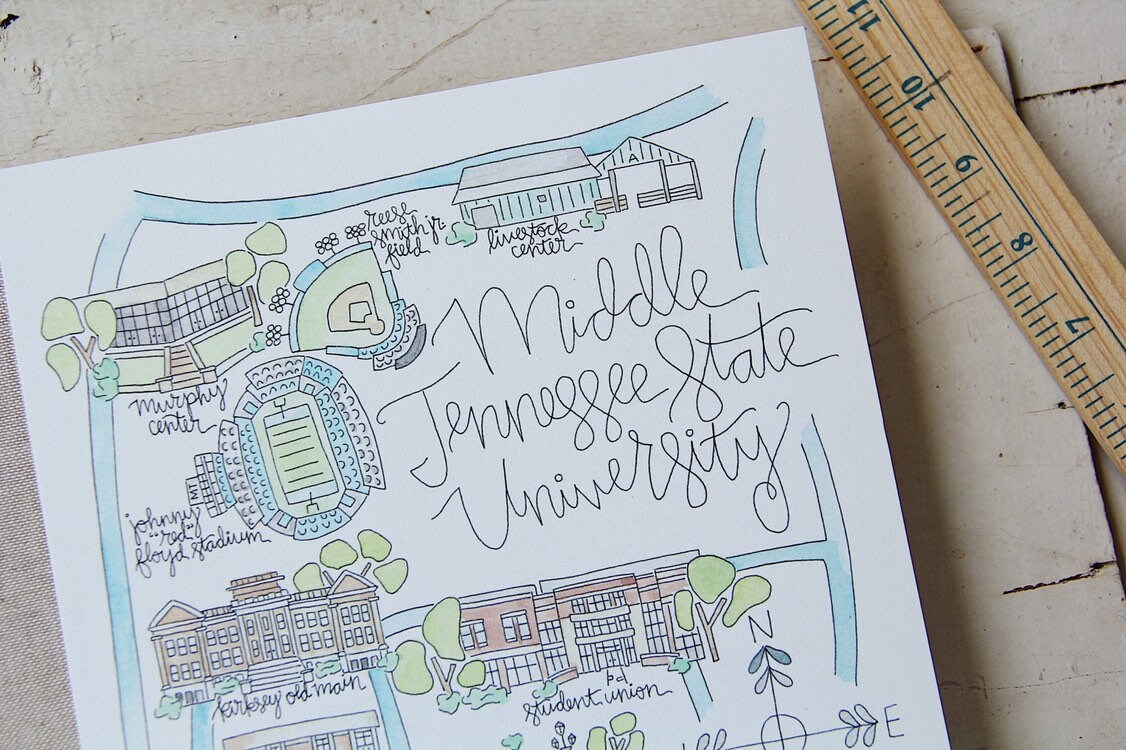 reese
smith jr.
field
livestock
center
A
Middle
Tennessee State
University
murphy
center
johnny
"red"
floyd stadium
kirksey old main
student union
N
E
11
10
9
8
7